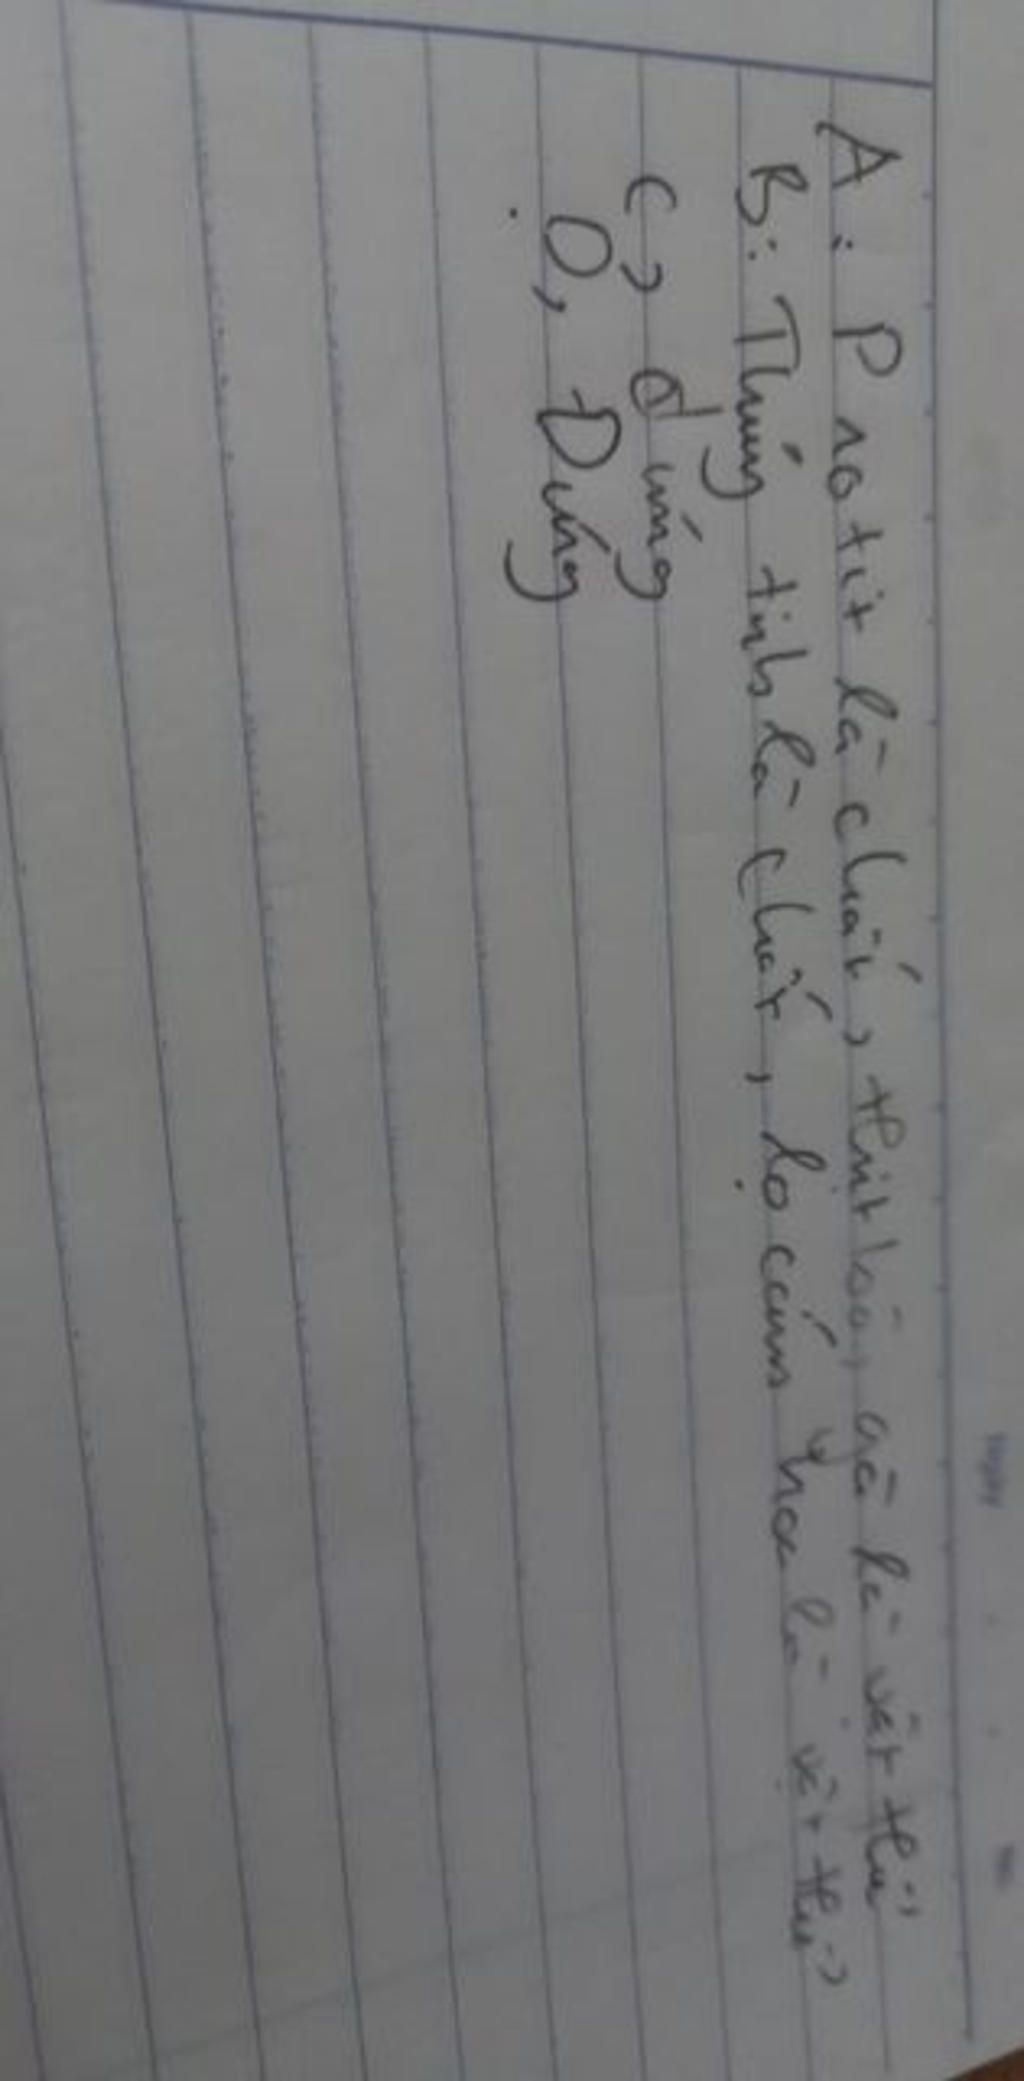 A: Protit là chất, thịt bò, gà là vật thể
B: Thủy tinh là chất, lọ cắm hoa là vật thể
C, đúng
D, Đúng